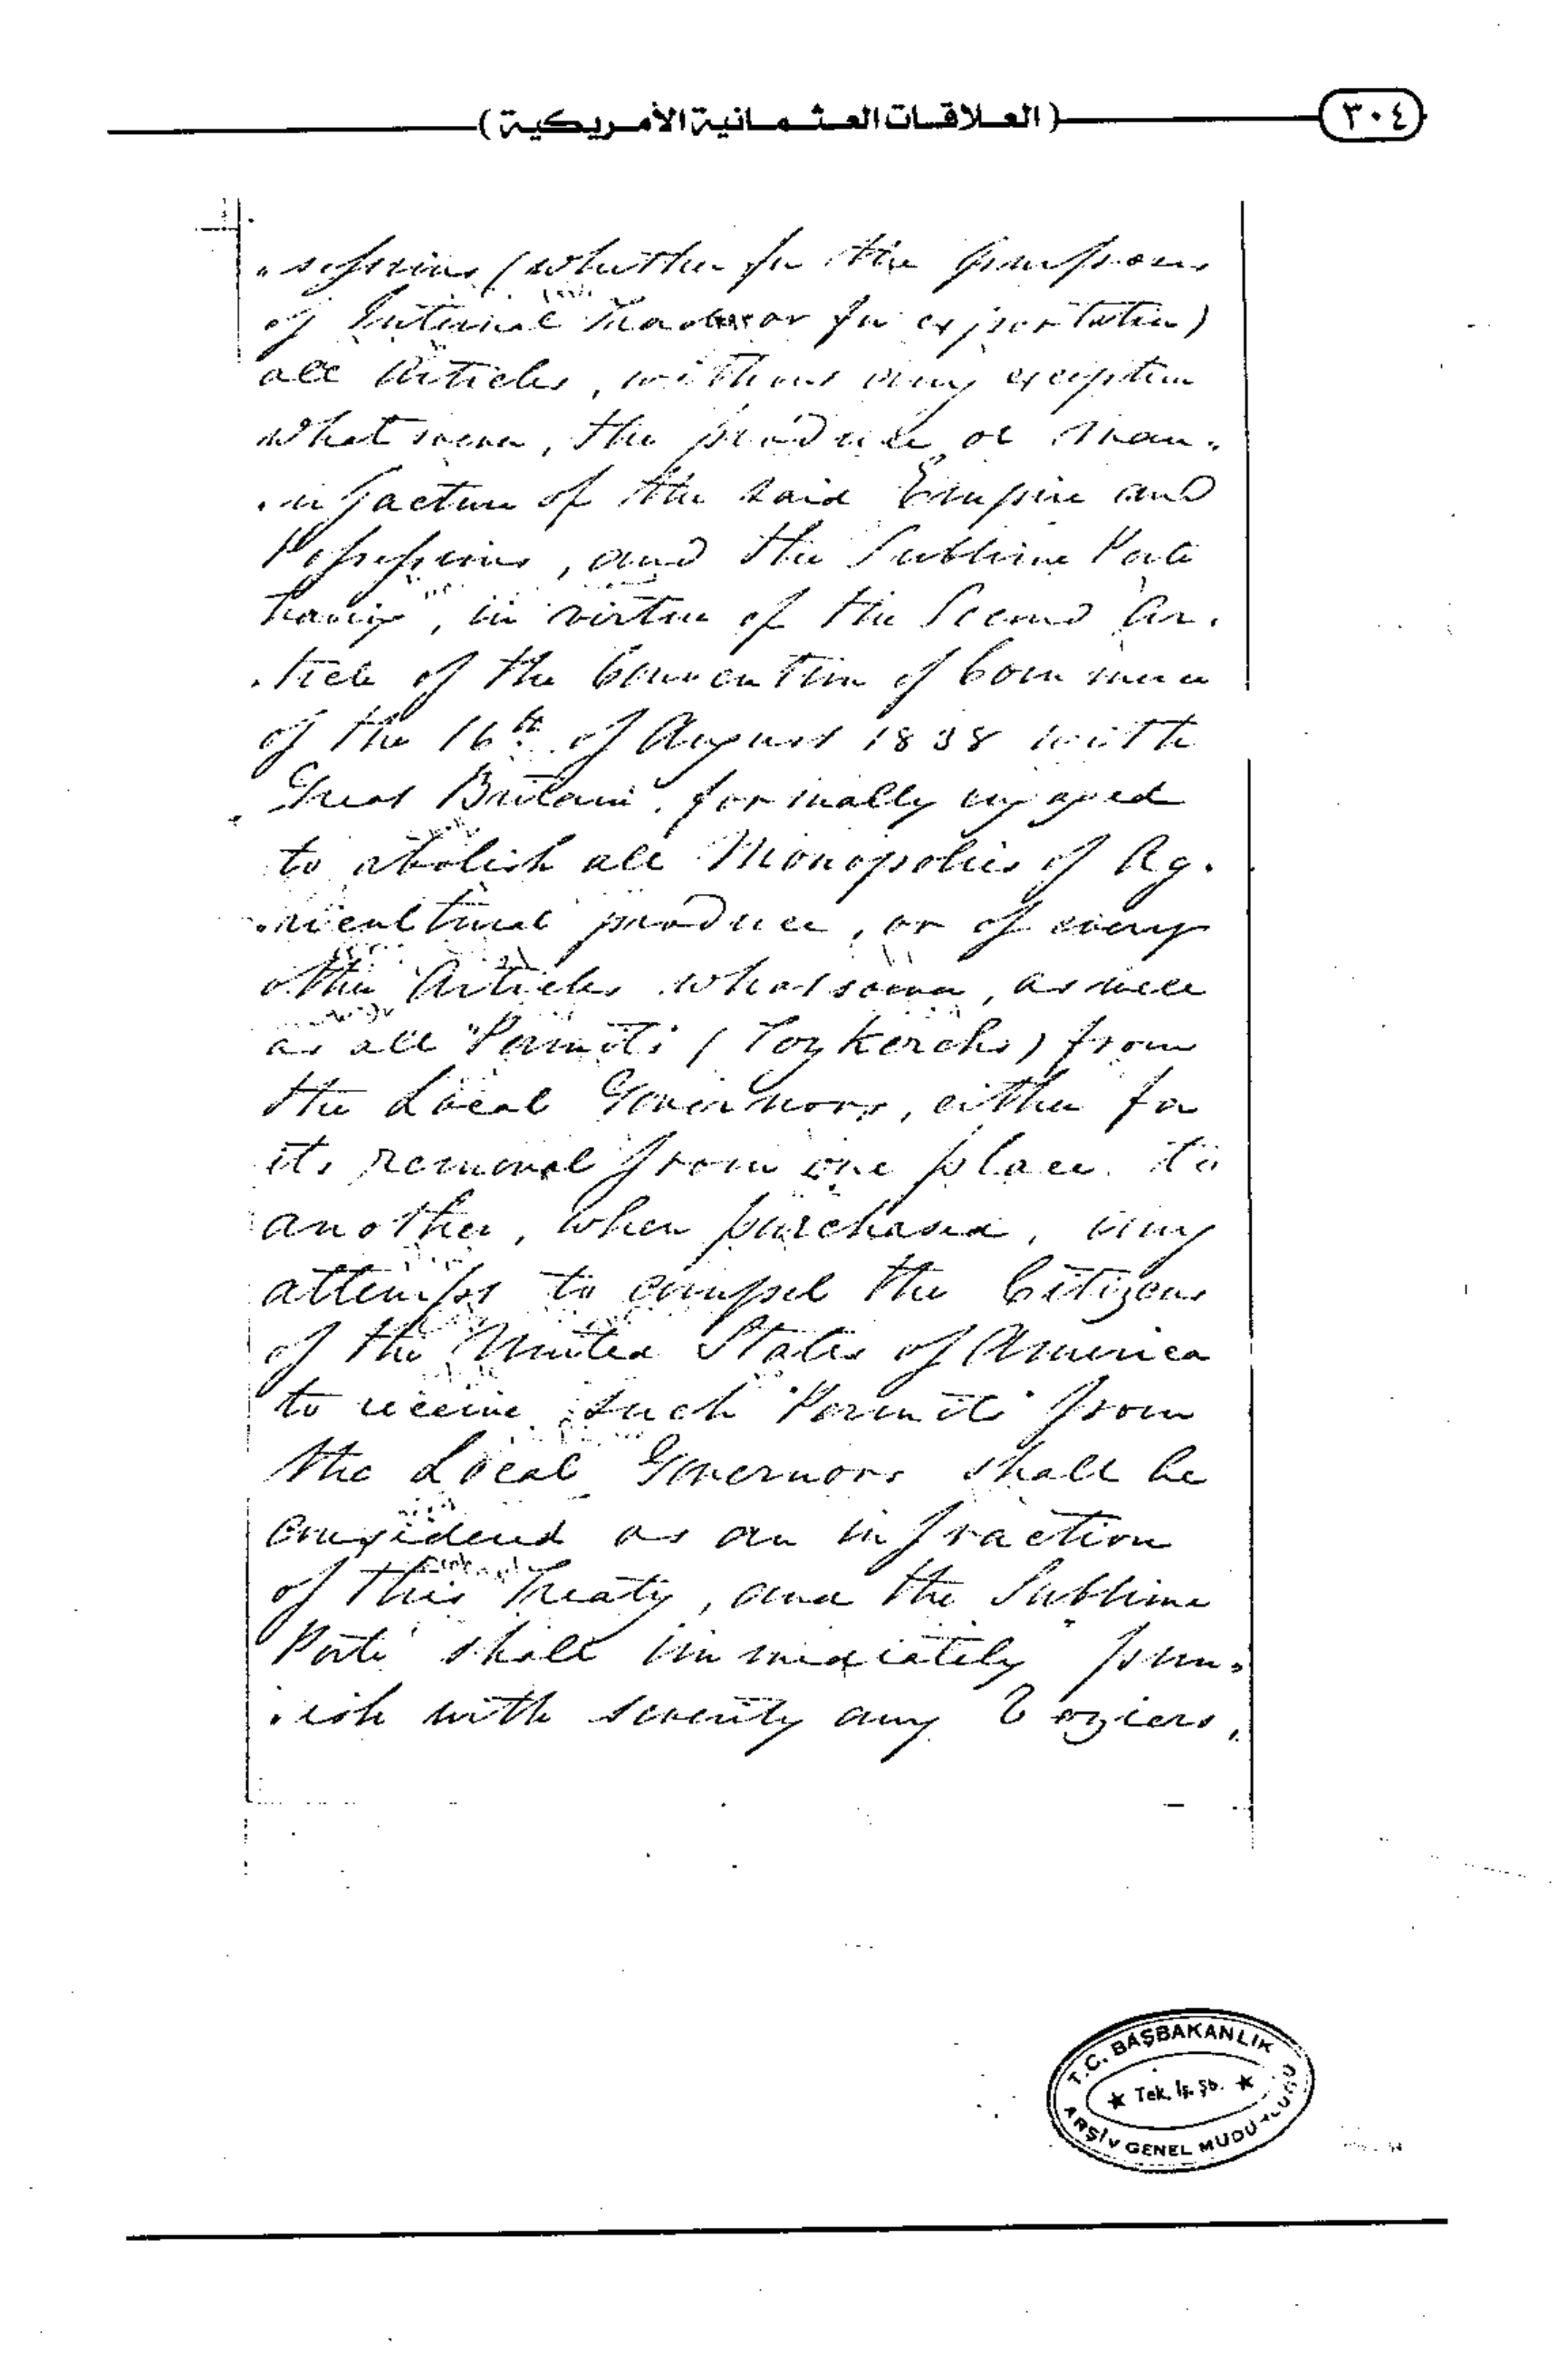 (العلاقات العثمانية الأمريكية)
٣٠٤
.sessions (whether for the purposes
of Internal Trade or for exportation)
all Articles, without any exception
whatsoever, the produce or man.
.ufacture of the said Empire and
Possessions, and the Sublime Porte
having, in virtue of the Second Ar.
.ticle of the Convention of Commerce
of the 16th of August 1838 with
Great Britain, formally engaged
to abolish all Monopolies of Ag.
.ricultural produce, or of every
other Articles whatsoever, as well
as all "Permits" (Tezkerehs) from
the Local Governors, either for
its removal from one place to
another, when purchased, any
attempt to compel the Citizens
of the United States of America
to receive such "Permits" from
the Local Governors shall be
considered as an infraction
of this Treaty, and the Sublime
Porte shall immediately pun.
.ish with severity any Veziers,
T.C. BAŞBAKANLIK
★ Tek. İş. Şb. ★
ARŞİV GENEL MÜDÜRLÜĞÜ